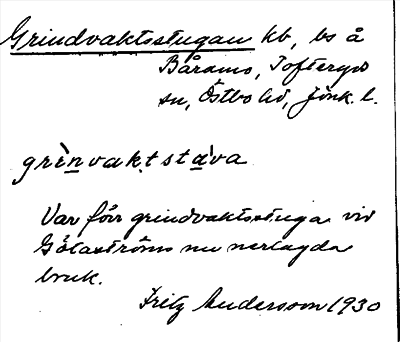 Grindvaktsstugan kb, bs å
Båramo, Tofteryds
sn, Östbo hd, Jönk. l.
grènvaktstàva
Var förr grindvaktsstuga vid
Götaströms nu nerlagda
bruk.
Fritz Andersson 1930